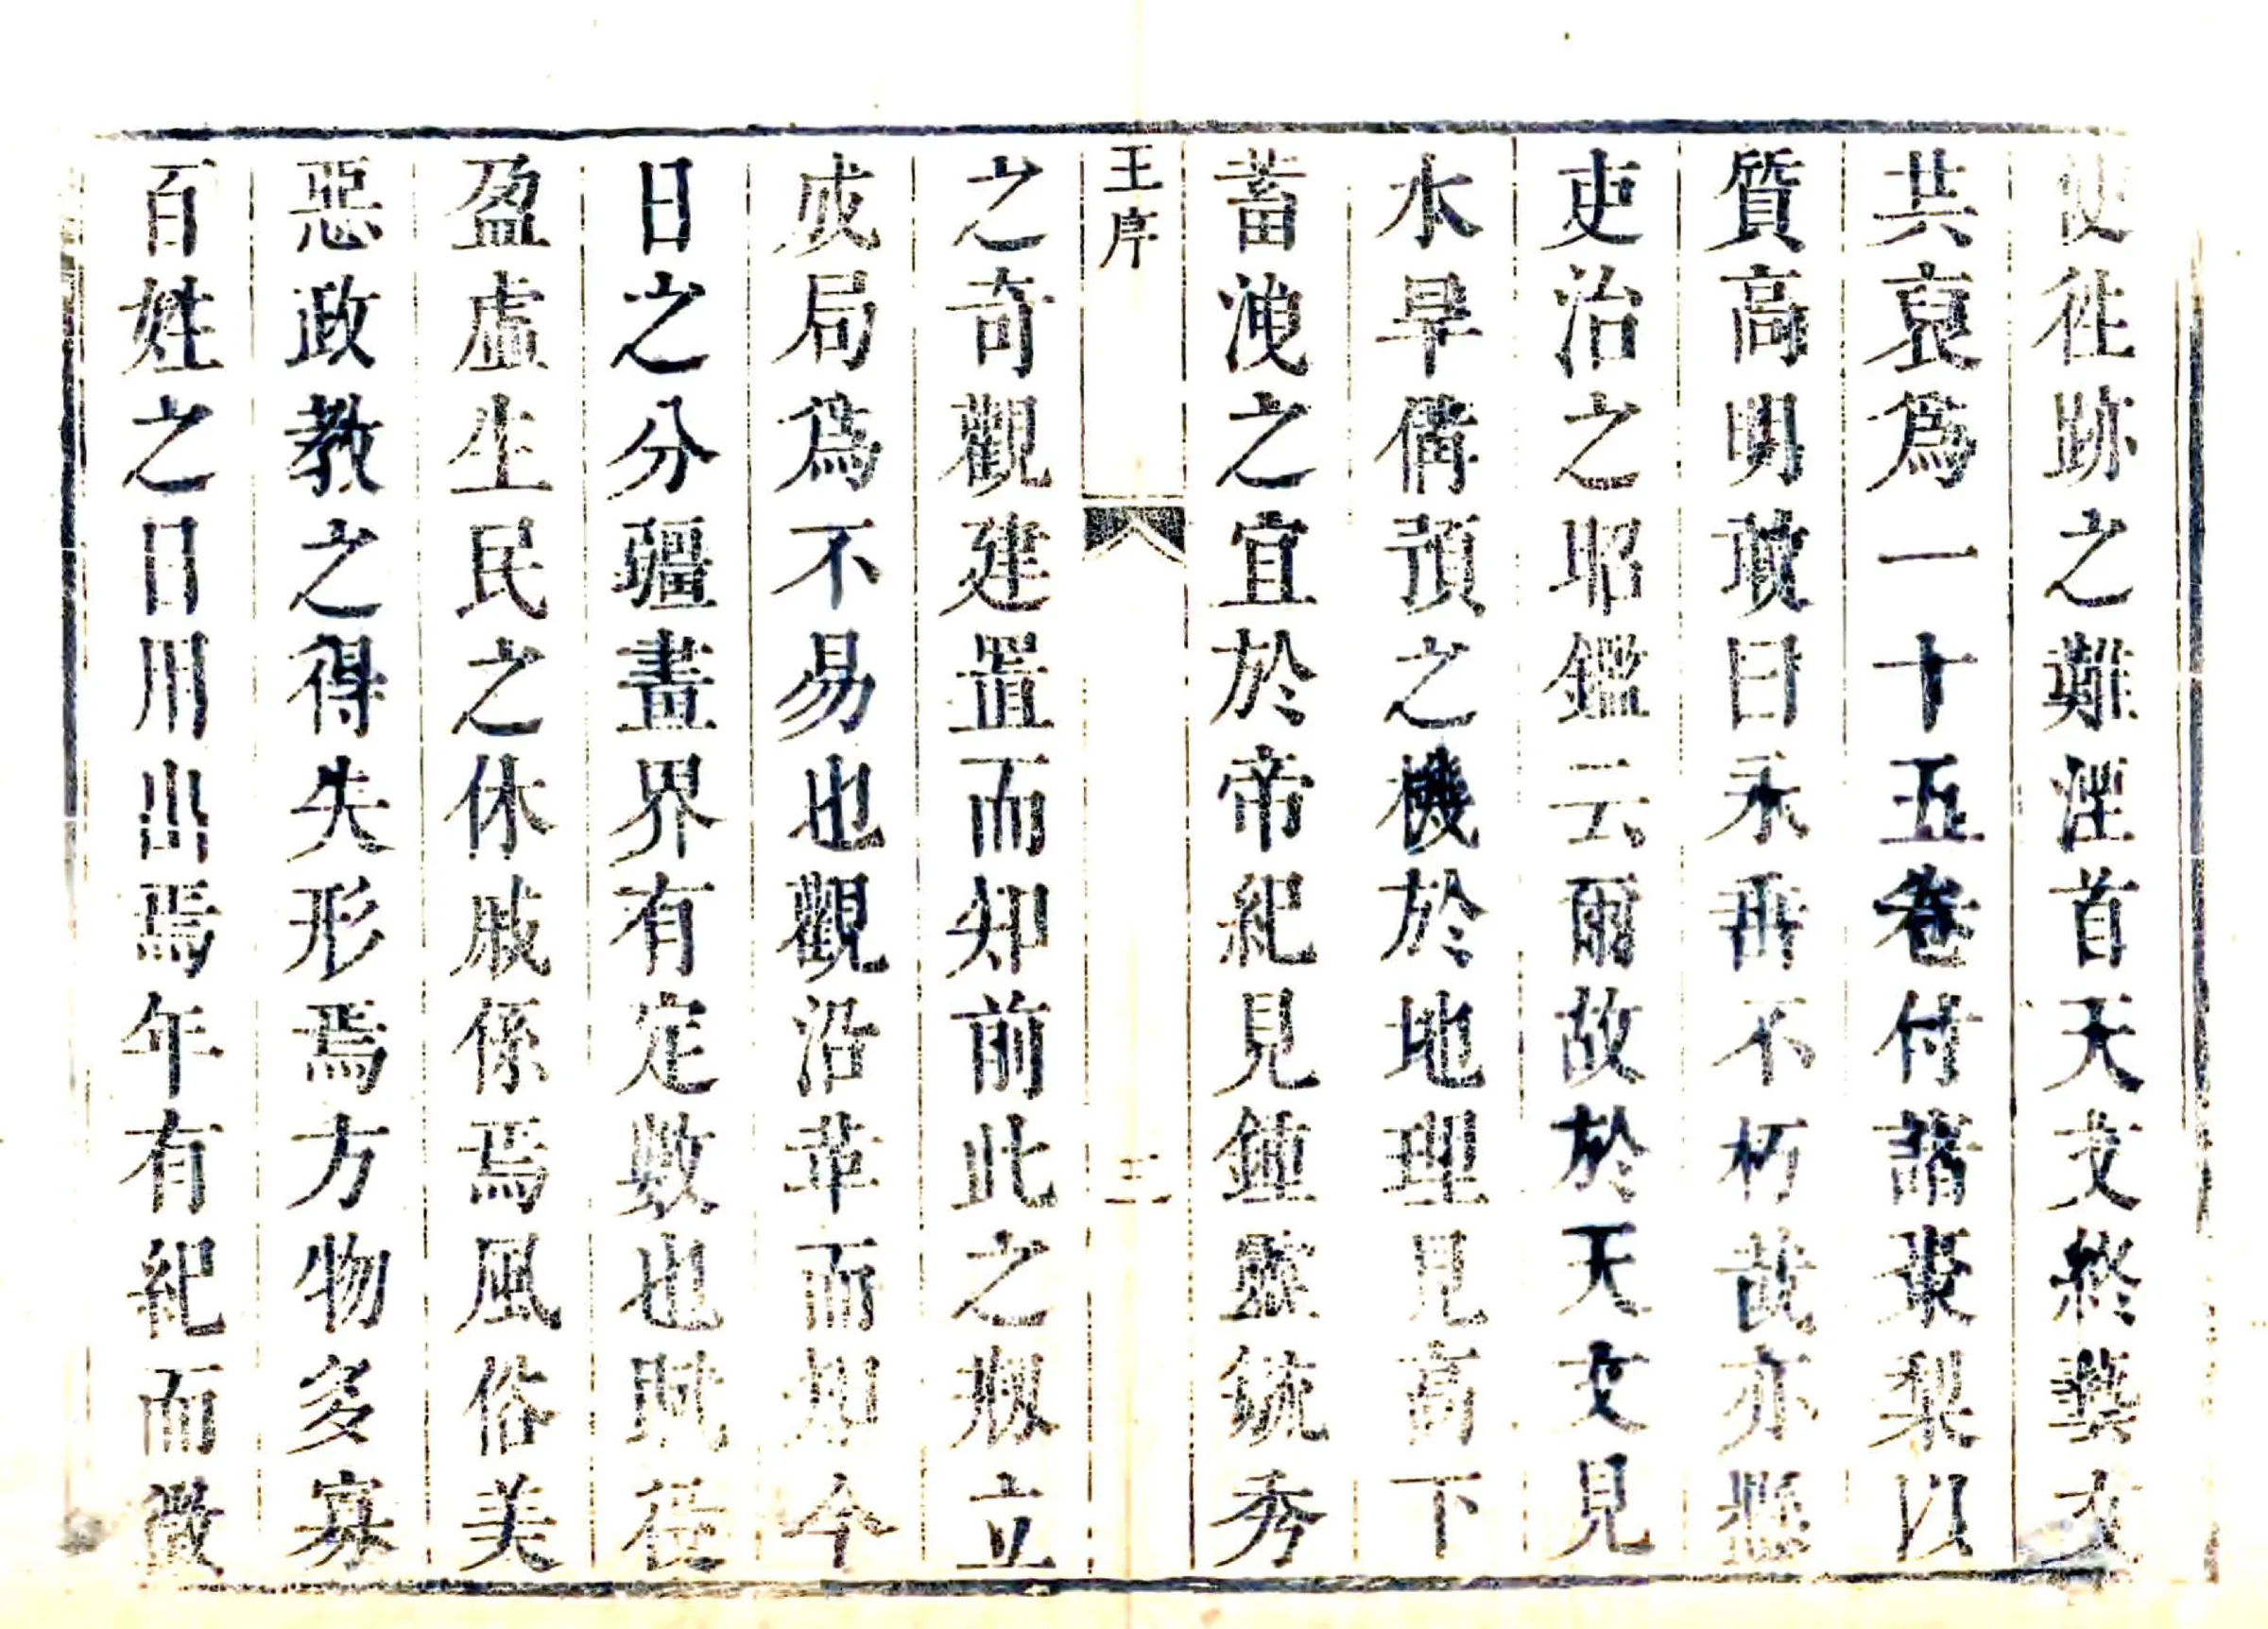 使往跡之難湮首天文終藝文
共裒爲一十五卷付諸棗梨以
質高明敢曰永垂不朽哉亦懸
吏治之昭鑑云爾故於天文見
水旱備預之機於地理見高下
蓄洩之宜於帝紀見鍾靈毓秀
王序
三
之奇觀建置而知前此之剏立
成局爲不易也觀沿革而知今
日之分疆畫界有定數也賦役
盈虛生民之休戚係焉風俗美
惡政教之得失形焉方物多寡
百姓之日用出焉年有紀而徵